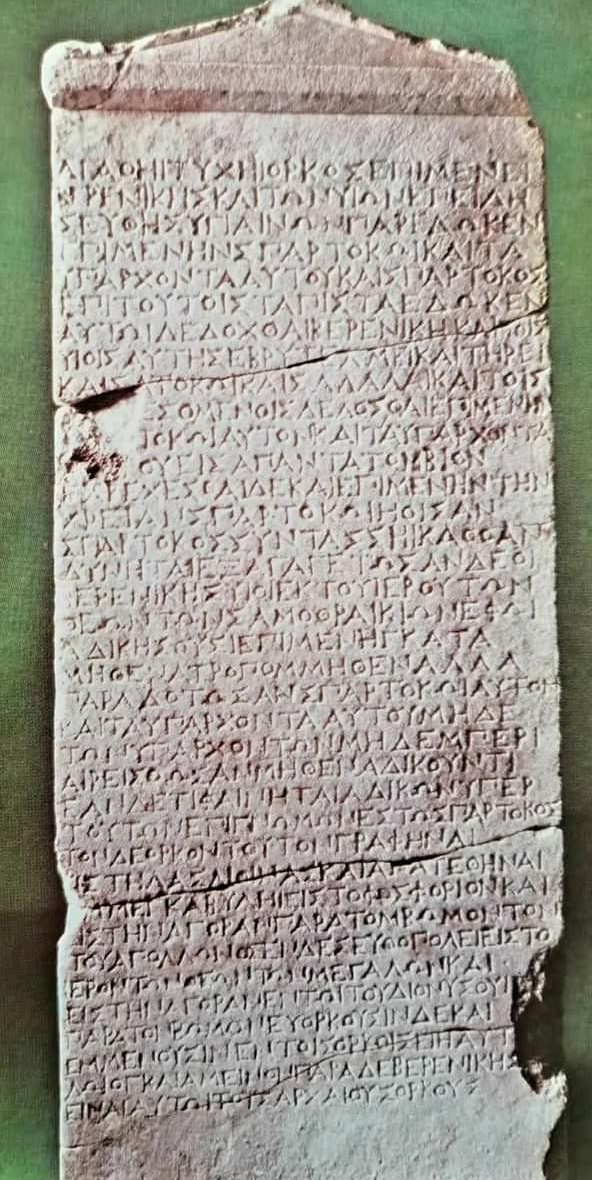 ΑΓΑΘΗΙΤΥΧΗΙΟΡΚΟΣΕΠΙΜΕΝΕΙ
ΒΕΡΕΝΙΚΗΣΚΑΙΤΩΝΥΙΩΝΕΠΕΙΔΗ
ΣΕΥΘΗΣΥΓΙΑΙΝΩΝΠΑΡΕΔΩΚΕΝ
ΕΠΙΜΕΝΗΝΣΠΑΡΤΟΚΩΙΚΑΙΤΑ
ΥΠΑΡΧΟΝΤΑΑΥΤΟΥΚΑΙΣΠΑΡΤΟΚΟΣ
ΕΠΙΤΟΥΤΟΙΣΤΑΠΙΣΤΑΕΔΩΚΕΝ
ΑΥΤΩΙΔΕΔΟΧΘΑΙΒΕΡΕΝΙΚΗΙΚΑΙΤΟΙΣ
ΥΙΟΙΣΑΥΤΗΣΕΒΡΥΖΕΛΜΕΙΚΑΙΤΗΡΕΙ
ΚΑΙΣΑΤΟΚΩΙΚΑΙΣΑΔΑΛΑΙΚΑΙΤΟΙΣ
ΕΣΟΜΕΝΟΙΣΔΕΔΟΣΘΑΙΕΠΙΜΕΝΗΝ
ΤΟΚΩΙΑΥΤΟΝΚΑΙΤΑΥΠΑΡΧΟΝΤΑ
ΟΥΕΙΣΑΠΑΝΤΑΤΟΜΒΙΟΝ
ΠΑΡΕΧΕΣΘΑΙΔΕΚΑΙΕΠΙΜΕΝΗΝΤΗΝ
ΧΡΕΙΑΝΣΠΑΡΤΟΚΩΙΗΟΙΣΑΝ
ΣΠΑΡΤΟΚΟΣΣΥΝΤΑΣΣΗΙΚΑΘΟΑΝ
ΔΥΝΗΤΑΙΕΞΑΓΑΓΕΤΩΣΑΝΔΕΟΙ
ΒΕΡΕΝΙΚΗΣΥΙΟΙΕΚΤΟΥΙΕΡΟΥΤΩΝ
ΘΕΩΝΤΩΝΣΑΜΟΘΡΑΙΚΙΩΝΕΦΩΙ
ΑΔΙΚΗΣΟΥΣΙΕΠΙΜΕΝΗΓΚΑΤΑ
ΜΗΘΕΝΑΤΡΟΠΟΜΜΗΘΕΝΑΛΛΑ
ΠΑΡΑΔΟΤΩΣΑΝΣΠΑΡΤΟΚΩΙΑΥΤΟΝ
ΚΑΙΤΑΥΠΑΡΧΟΝΤΑΑΥΤΟΥΜΗΔΕ
ΤΩΝΥΠΑΡΧΟΝΤΩΝΜΗΔΕΜΠΕΡΙ
ΑΙΡΕΙΣΘΩΣΑΝΜΗΘΕΝΑΔΙΚΟΥΝΤΙ
ΕΑΝΔΕΤΙΦΑΙΝΗΤΑΙΑΔΙΚΩΝΥΠΕΡ
ΤΟΥΤΩΝΕΠΙΓΝΩΜΩΝΕΣΤΩΣΠΑΡΤΟΚΟΣ
ΤΟΝΔΕΟΡΚΟΝΤΟΥΤΟΝΓΡΑΦΗΝΑΙ
ΕΙΣΤΗΛΑΣΛΙΘΙΝΑΣΚΑΙΑΝΑΤΕΘΗΝΑΙ
ΤΗΜΕΓΚΑΒΥΛΗΙΕΙΣΤΟΦΩΣΦΟΡΙΟΝΚΑΙ
ΕΙΣΤΗΝΑΓΟΡΑΝΠΑΡΑΤΟΜΒΩΜΟΝΤΟΝ
ΤΟΥΑΠΟΛΛΩΝΟΣΕΝΔΕΣΕΥΘΟΠΟΛΕΙΕΙΣΤΟ
ΙΕΡΟΝΤΩΝΘΕΩΝΤΩΜΜΕΓΑΛΩΝΚΑΙ
ΕΙΣΤΗΝΑΓΟΡΑΝΕΝΤΩΙΤΟΥΔΙΟΝΥΣΟΥΙ
ΠΑΡΑΤΟΝΒΩΜΟΝΕΥΟΡΚΟΥΣΙΝΔΕΚΑΙ
ΕΜΜΕΝΟΥΣΙΝΕΝΤΟΙΣΟΡΚΟΙΣΕΙΗΑΥΤ
ΛΩΙΟΓΚΑΙΑΜΕΙΝΟΝΠΑΡΑΔΕΒΕΡΕΝΙΚΗΣ
ΕΙΝΑΙΑΥΤΩΙΤΟΥΣΑΡΧΑΙΟΥΣΟΡΚΟΥΣ